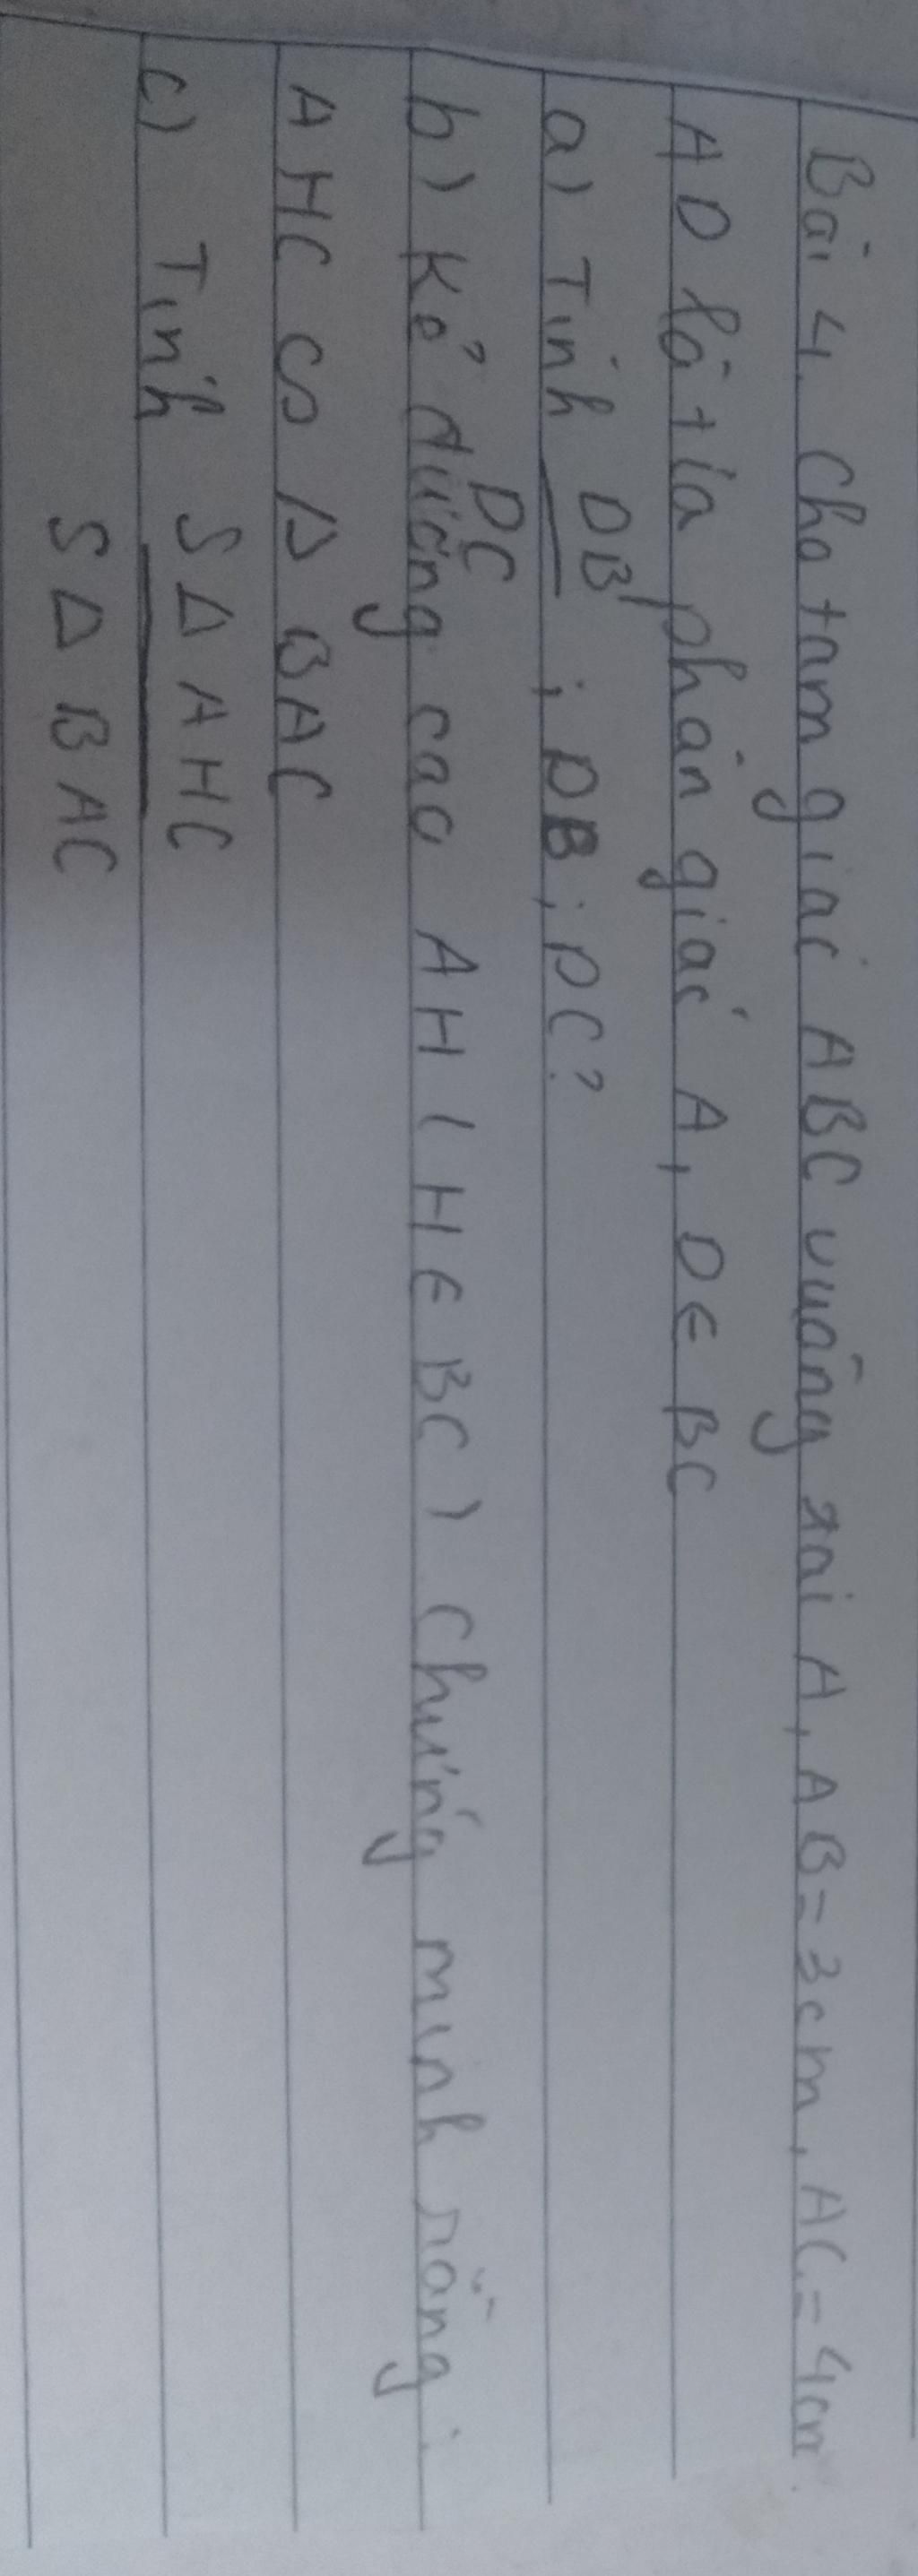 Bài 4. Cho tam giác ABC vuông tại A, AB = 3cm, AC = 4cm.
AD là tia phân giác A, D ∈ BC
a) Tính DB/DC ; DB ; DC?
b) Kẻ đường cao AH ( H ∈ BC ) Chứng minh rằng :
AHC ∽ Δ BAC
c) Tính SΔAHC
SΔBAC